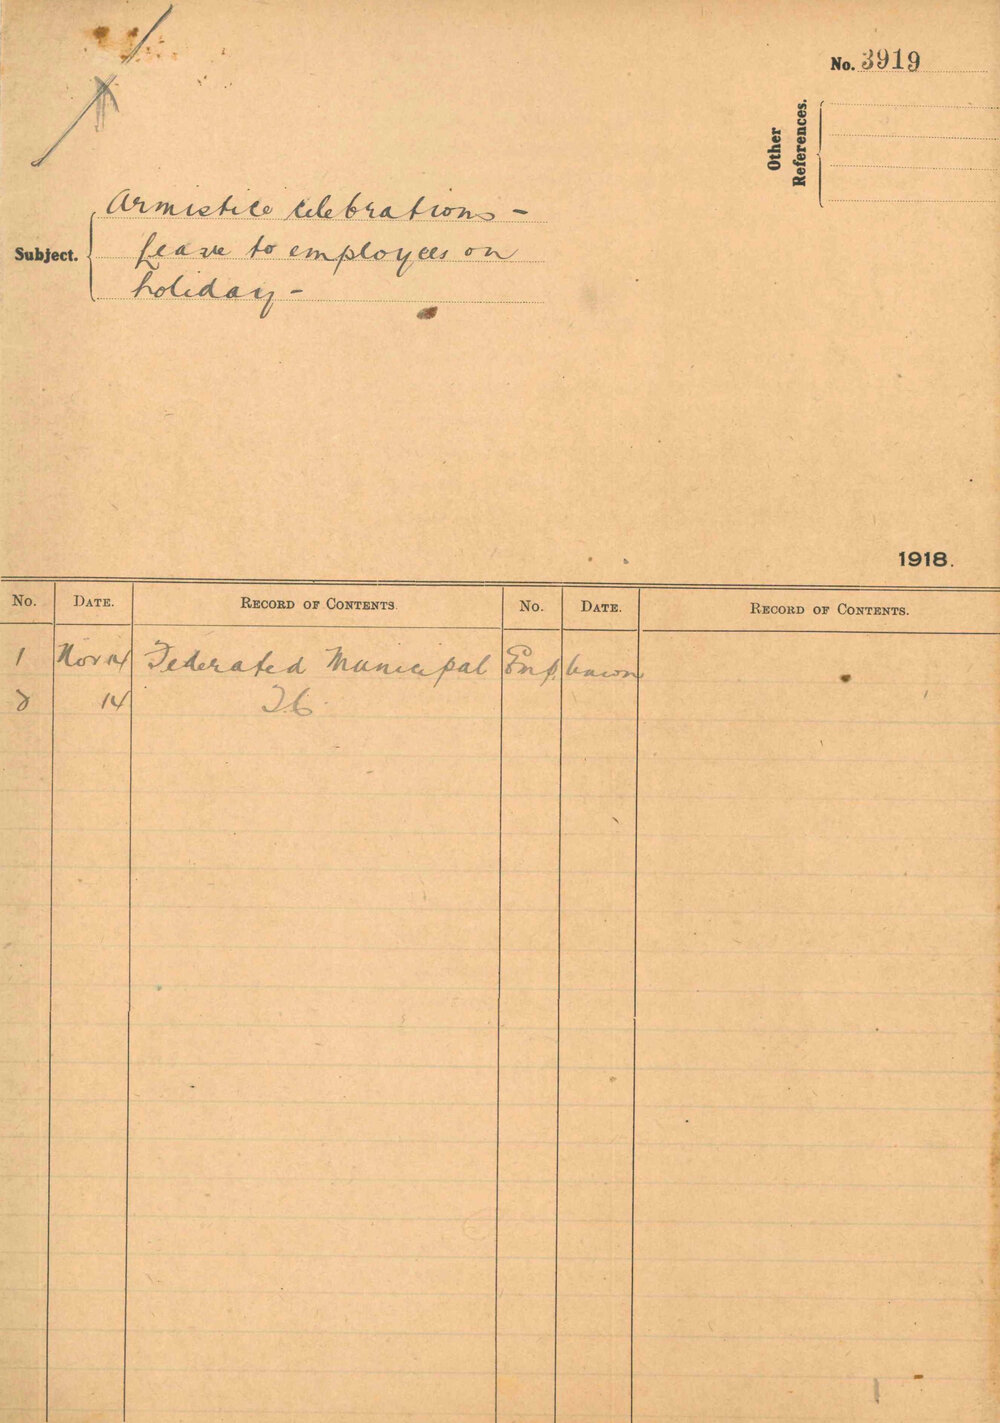 No. 3919
Other
References.
Subject.
Armistice Celebrations -
Leave to employees on
holiday -
1918.
No. DATE. RECORD OF CONTENTS. No. DATE. RECORD OF CONTENTS.
1 Nov 14 Federated Municipal Emp. Union
2 14